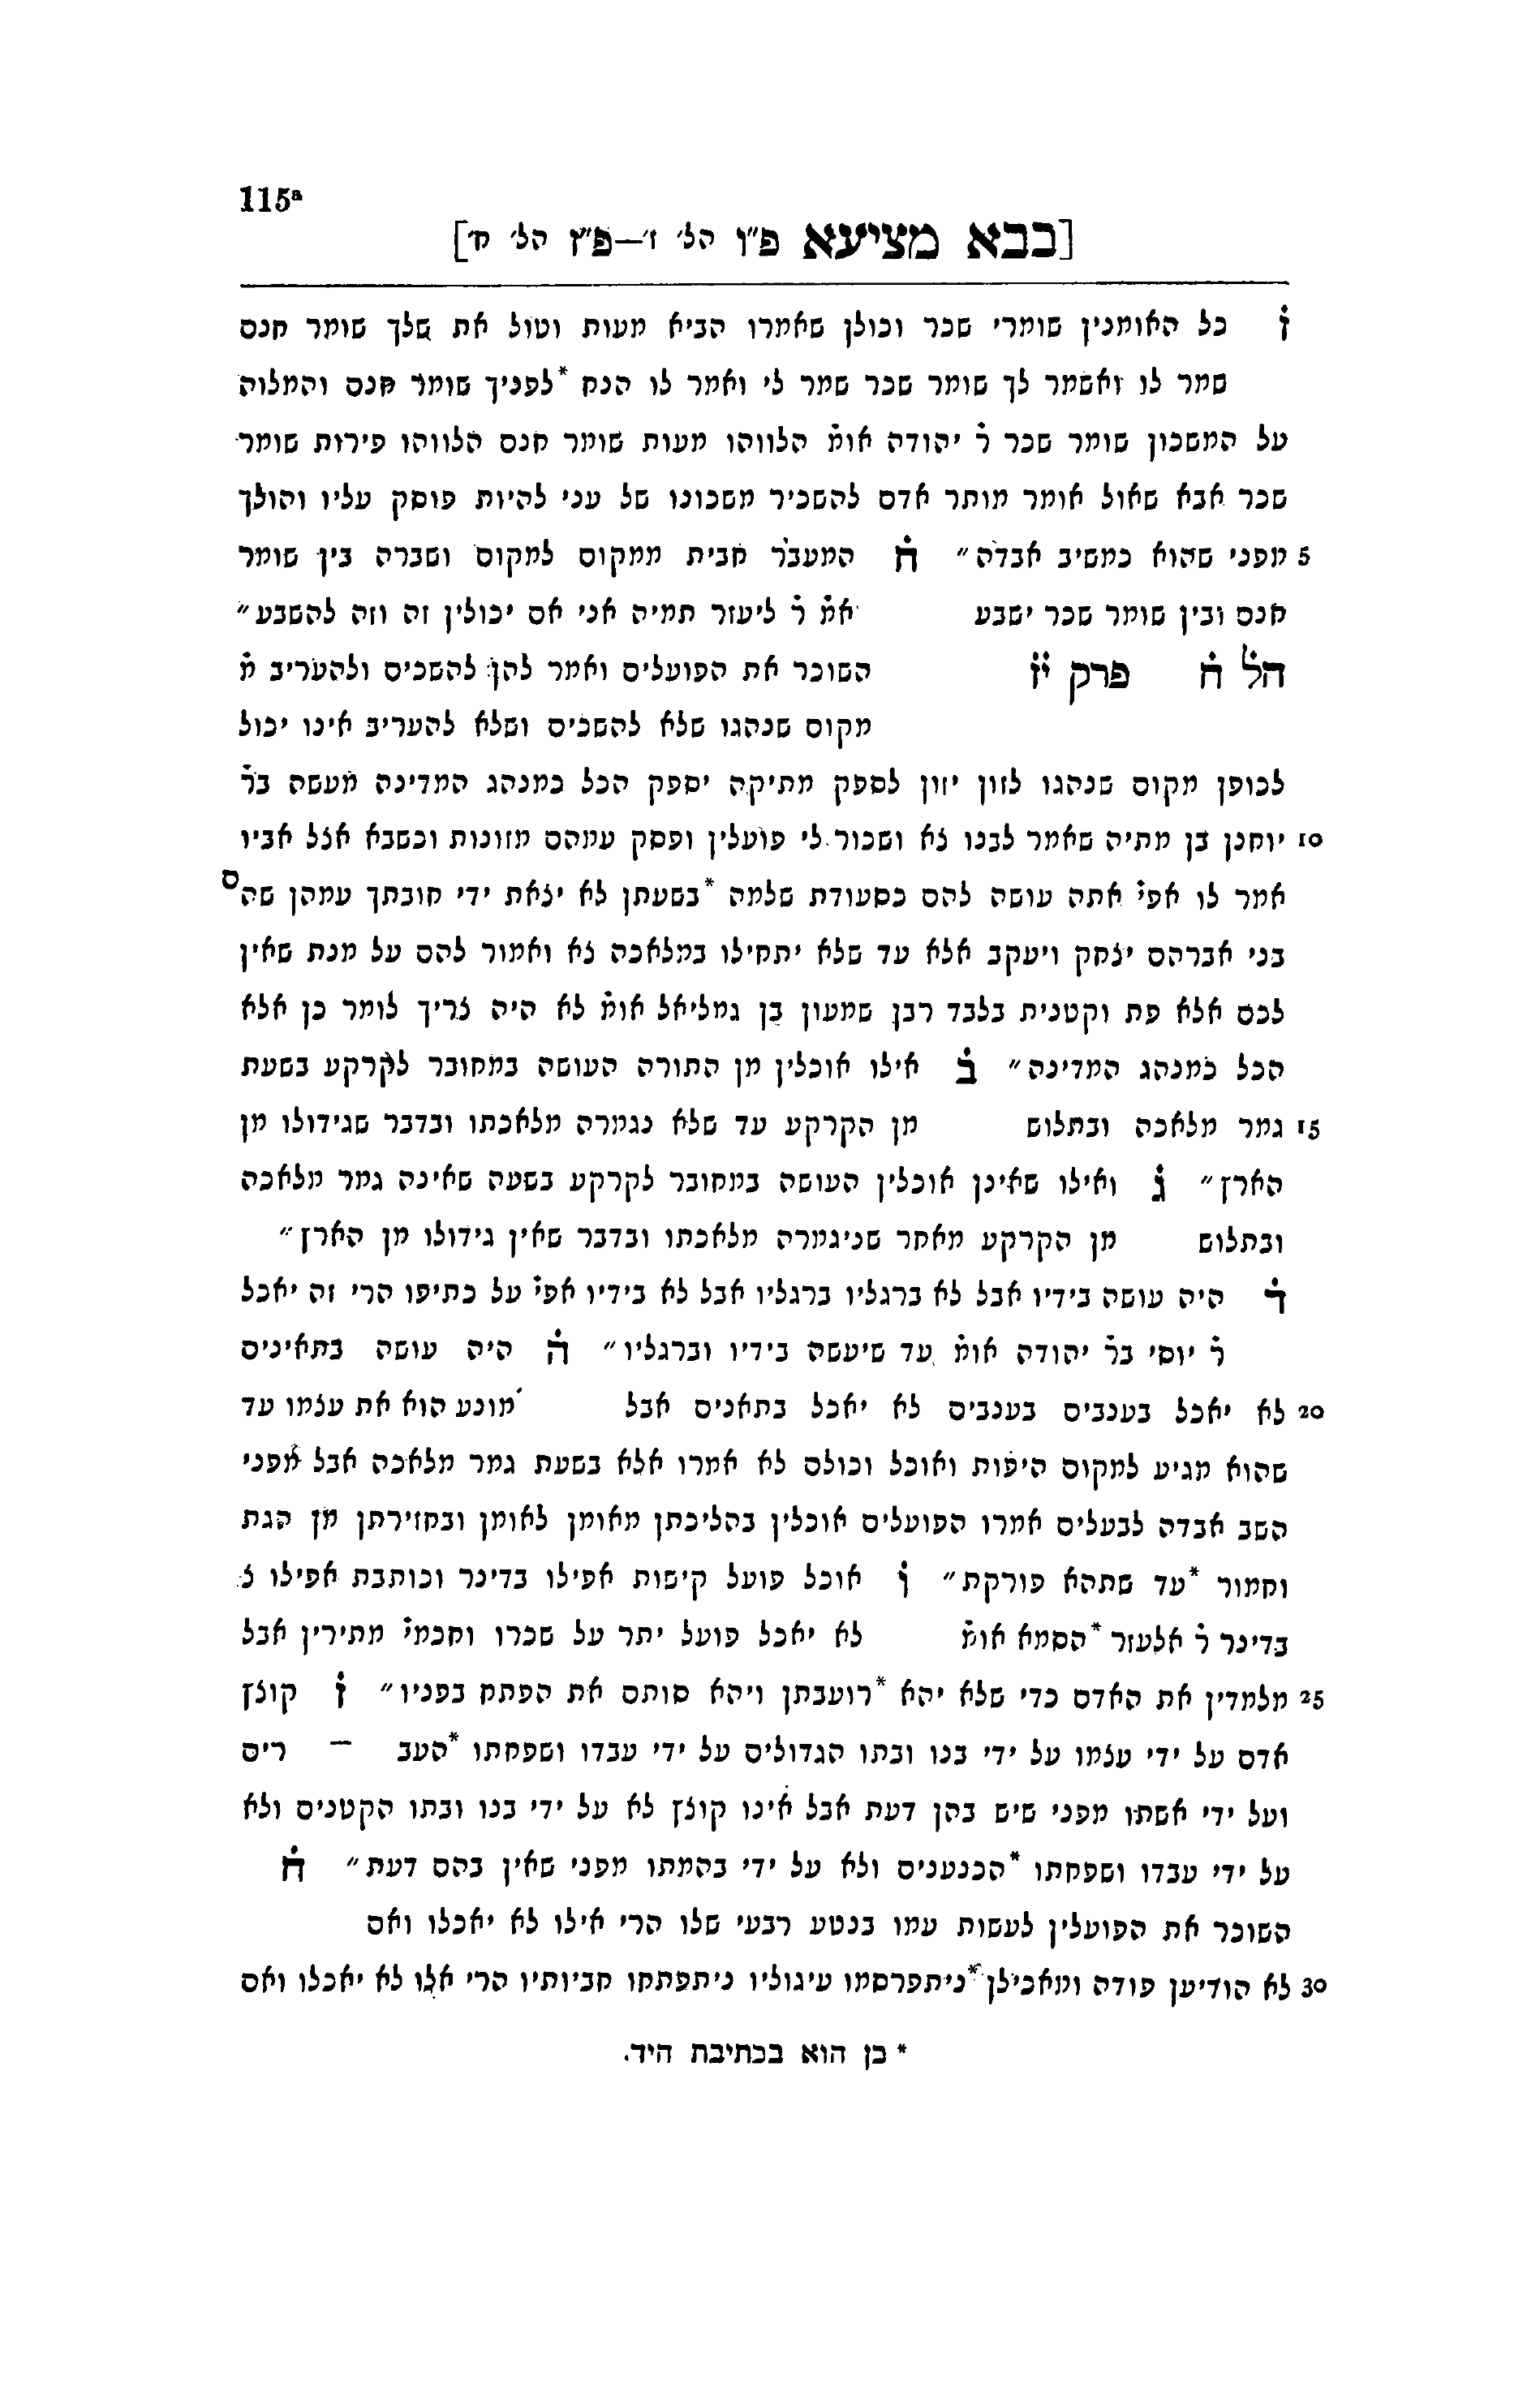 115ᵃ
[בבא מציעא פ״ו הל׳ ז׳—פ״ז הל׳ ח׳]
ז̇ כל האומנין שומרי שכר וכולן שאמרו הביא מעות וטול את שלך שומר חנם
שמר לו ואשמר לך שומר שכר שמר לי ואמר לו הנח *לפניך שומר חנם והמלוה
על המשכון שומר שכר ר̇ יהודה אומ̇ הלווהו מעות שומר חנם הלווהו פירות שומר
שכר אבא שאול אומר מותר אדם להשכיר משכונו של עני להיות פוסק עליו והולך
5 מפני שהוא כמשיב אבדה״ ח̇ המעבר חבית ממקום למקום ושברה בין שומר
חנם ובין שומר שכר ישבע אמ̇ ר̇ ליעזר תמיה אני אם יכולין זה וזה להשבע״
הל̇ ח̇ פרק ז̈י השוכר את הפועלים ואמר להן להשכים ולהעריב מ̇
מקום שנהגו שלא להשכים ושלא להעריב אינו יכול
לכופן מקום שנהגו לזון יזון לספק מתיקה יספק הכל כמנהג המדינה מעשה בר̇
10 יוחנן בן מתיה שאמר לבנו צא ושכור לי פועלין ופסק עמהם מזונות וכשבא אצל אביו
אמר לו אפי̇ אתה עושה להם כסעודת שלמה *בשעתן לא יצאת ידי חובתך עמהן שהם
בני אברהם יצחק ויעקב אלא עד שלא יתחילו במלאכה צא ואמור להם על מנת שאין
לכם אלא פת וקטנית בלבד רבן שמעון בן גמליאל אומ̇ לא היה צריך לומר כן אלא
הכל כמנהג המדינה״ ב̇ אילו אוכלין מן התורה העושה במחובר לקרקע בשעת
15 גמר מלאכה ובתלוש מן הקרקע עד שלא נגמרה מלאכתו ובדבר שגידולו מן
הארץ״ ג̇ ואילו שאינן אוכלין העושה במחובר לקרקע בשעה שאינה גמר מלאכה
ובתלוש מן הקרקע מאחר שניגמרה מלאכתו ובדבר שאין גידולו מן הארץ״
ד̇ היה עושה בידיו אבל לא ברגליו ברגליו אבל לא בידיו אפי̇ על כתיפו הרי זה יאכל
ר̇ יוסי בר̇ יהודה אומ̇ עד שיעשה בידיו וברגליו״ ה̇ היה עושה בתאינים
20 לא יאכל בענבים בענבים לא יאכל בתאנים אבל מונע הוא את עצמו עד
שהוא מגיע למקום היפות ואוכל וכולם לא אמרו אלא בשעת גמר מלאכה אבל מפני
השב אבדה לבעלים אמרו הפועלים אוכלין בהליכתן מאומן לאומן ובחזירתן מן הגת
וחמור *עד שתהא פורקת״ ו̇ אוכל פועל קישות אפילו בדינר וכותבת אפילו צ
בדינר ר̇ אלעזר *הסמא אומ̇ לא יאכל פועל יתר על שכרו וחכמי̇ מתירין אבל
25 מלמדין את האדם כדי שלא יהא *רועבתן ויהא סותם את הפתח בפניו״ ז̇ קוצץ
אדם על ידי עצמו על ידי בנו ובתו הגדולים על ידי עבדו ושפחתו *העב – רים
ועל ידי אשתו מפני שיש בהן דעת אבל אינו קוצץ לא על ידי בנו ובתו הקטנים ולא
על ידי עבדו ושפחתו *הכנענים ולא על ידי בהמתו מפני שאין בהם דעת״ ח̇
השוכר את הפועלין לעשות עמו בנטע רבעי שלו הרי אילו לא יאכלו ואם
30 לא הודיען פודה ומאכילן *ניתפרסמו עיגוליו ניתפתחו חביותיו הרי אלו לא יאכלו ואם
* כן הוא בכתיבת היד.